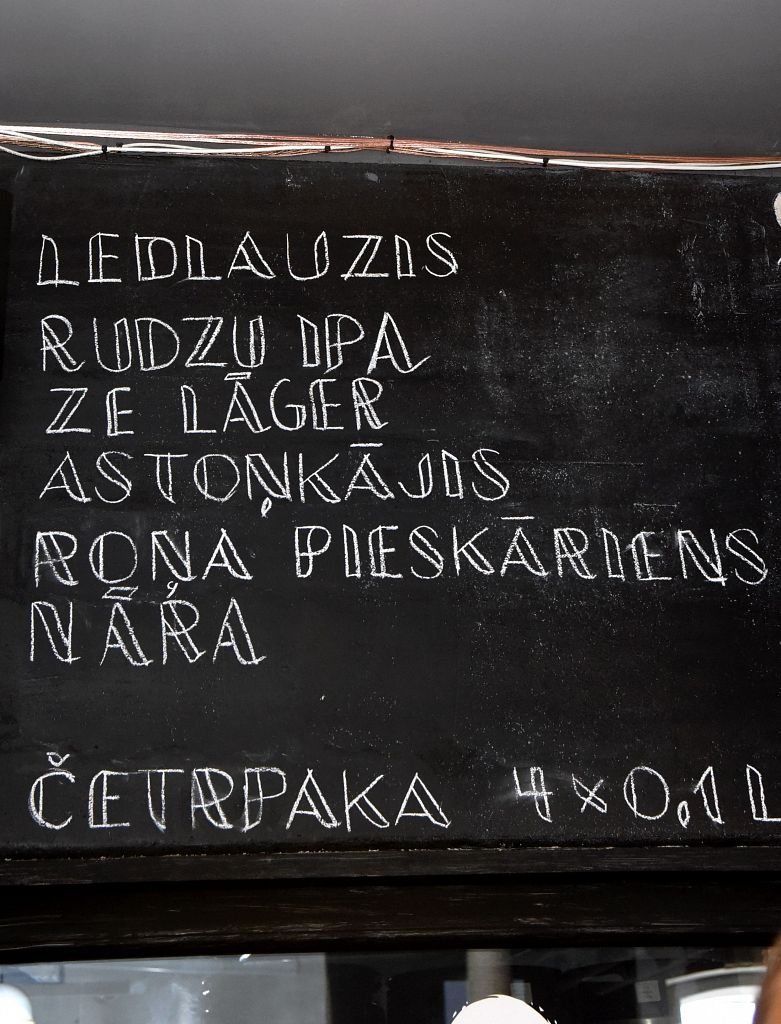 LEDLAUZIS
RUDZU IPA
ZE LĀGER
ASTOŅKĀJIS
ROŅA PIESKĀRIENS
NĀRA
ČETRPAKA 4×0,1 L